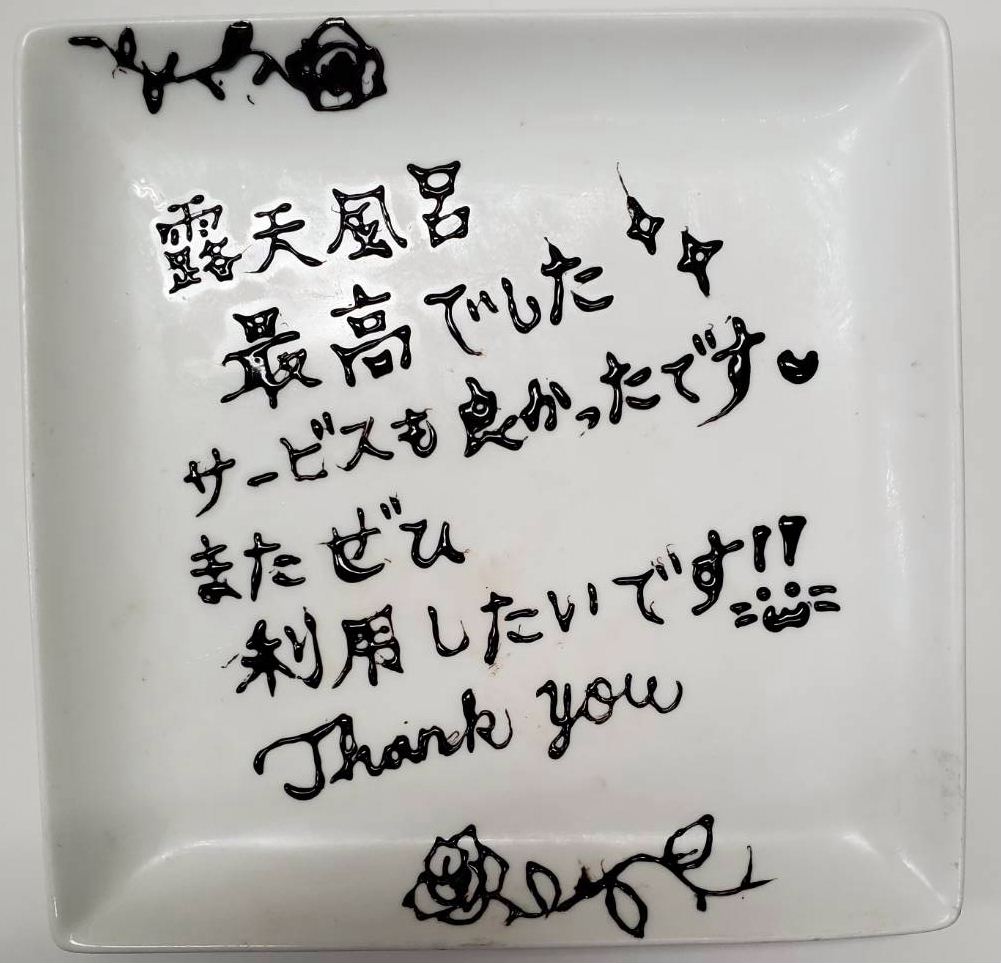 露天風呂
最高でした
サービスも良かったです
またぜひ
利用したいです!!
Thank you